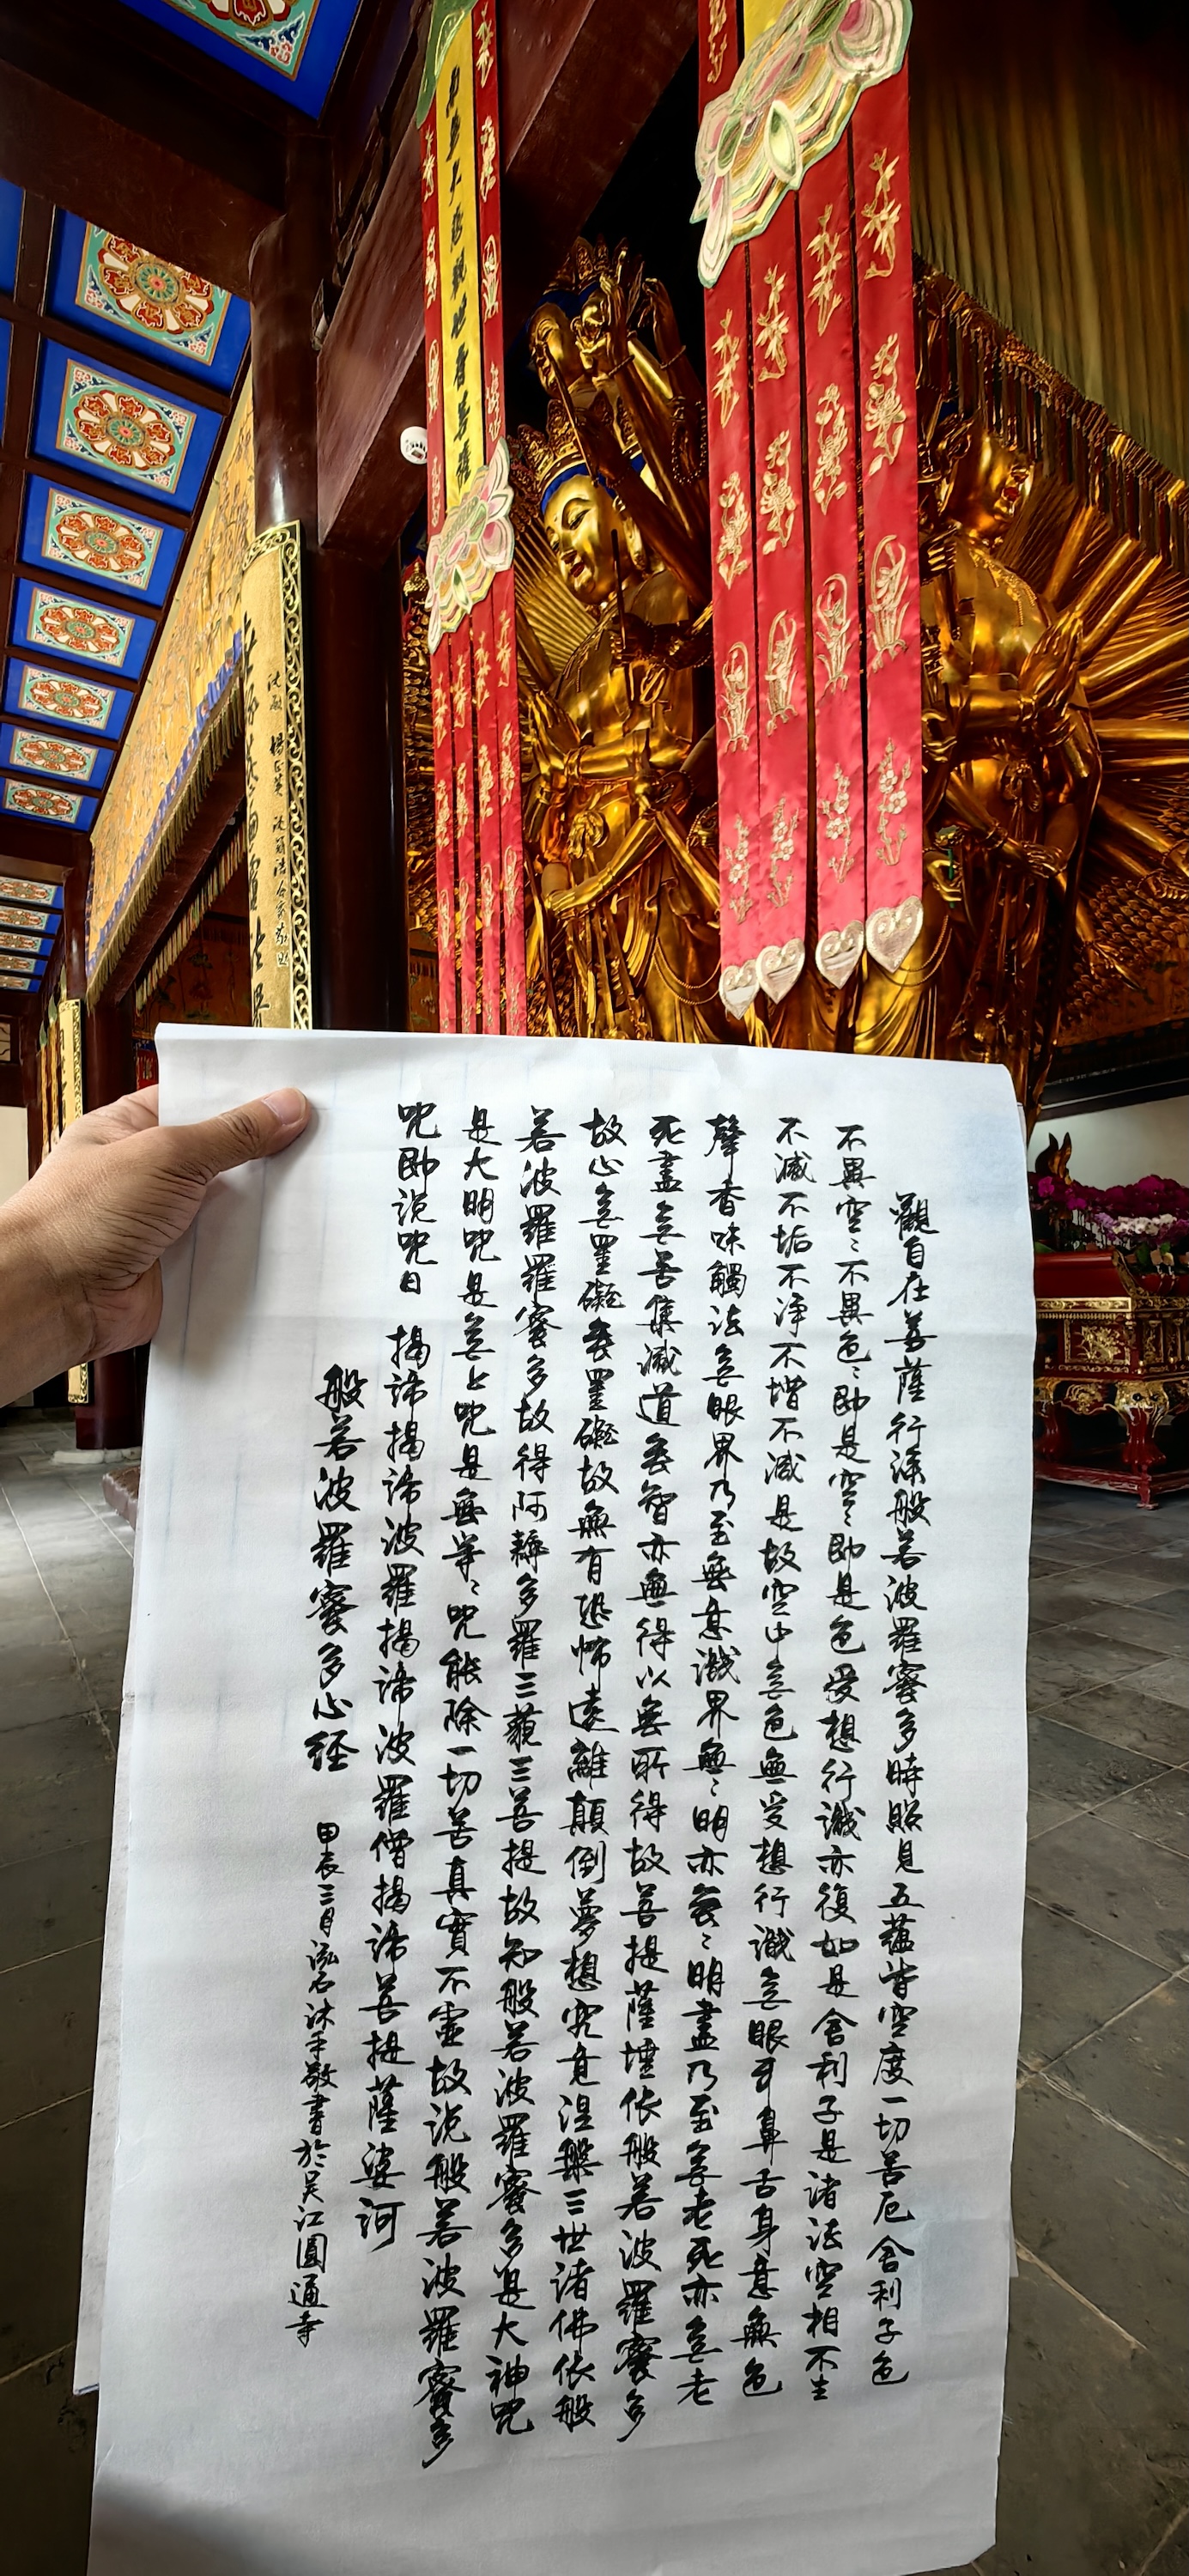 觀自在菩薩行深般若波羅蜜多時照見五蘊皆空度一切苦厄舍利子色
不異空〻不異色〻即是空〻即是色受想行識亦復如是舍利子是諸法空相不生
不滅不垢不净不增不减是故空中無色無受想行識無眼耳鼻舌身意無色
聲香味觸法無眼界乃至無意識界無〻明亦無〻明盡乃至無老死亦無老
死盡無苦集滅道無智亦無得以無所得故菩提薩埵依般若波羅蜜多
故心無罣礙無罣礙故無有恐怖遠離顛倒夢想究竟涅槃三世諸佛依般
若波羅羅蜜多故得阿耨多羅三藐三菩提故知般若波羅蜜多是大神咒
是大明咒是無上咒是無等〻咒能除一切苦真實不虛故説般若波羅蜜多
咒即説咒曰 揭諦揭諦波羅揭諦波羅僧揭諦菩提薩婆訶
般若波羅蜜多心経
甲辰三月泓石沐手敬書於吴江圓通寺